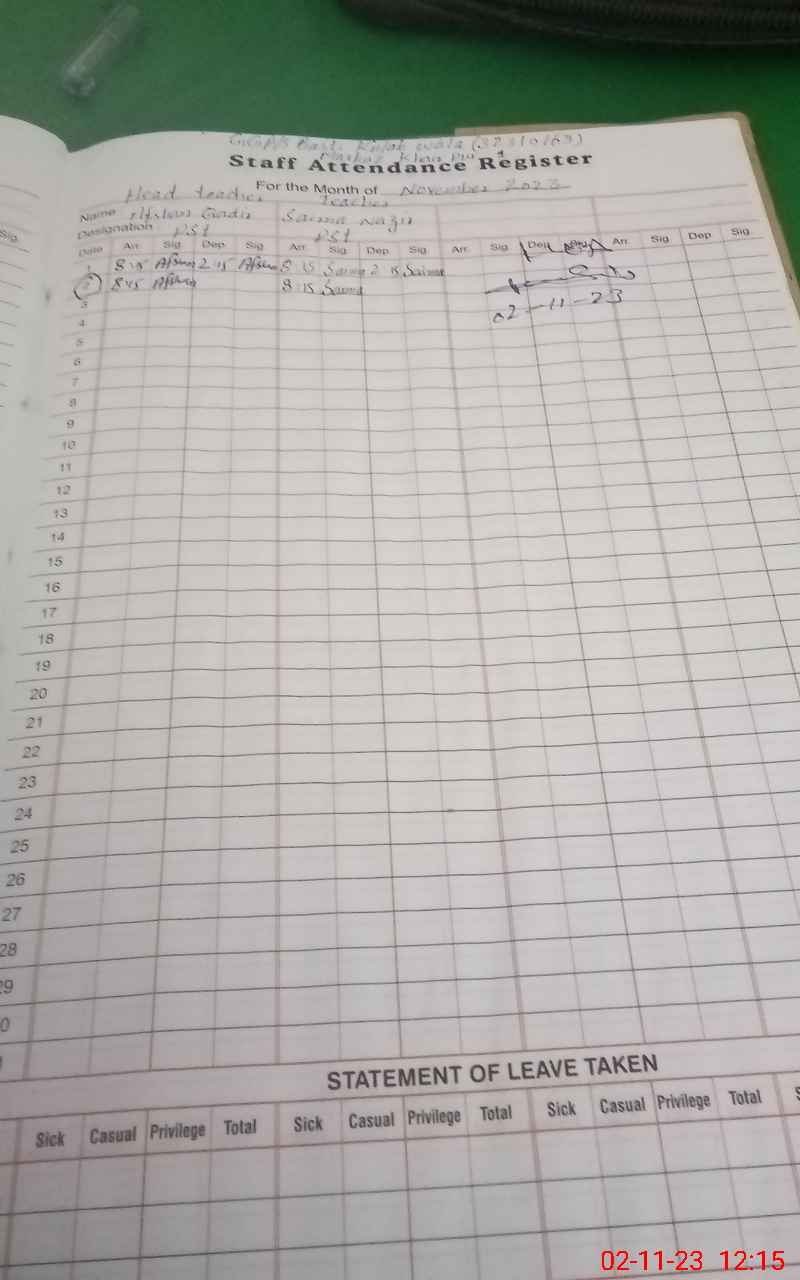 Staff Attendance Register
For the Month of November 2023
Head teacher Teacher
Name Saima Nazir
Designation PST PST
Date Arr. Sig Dep Sig Arr. Sig Dep Sig Arr. Sig Dep Arr. Sig Dep Sig
1 8:15 Afshan 2:15 Afshan 8:15 Saima 2:15 Saima
2 8:15 Afshan 8:15 Saima
02-11-23
3
4
5
6
7
8
9
10
11
12
13
14
15
16
17
18
19
20
21
22
23
24
25
26
27
28
29
0
STATEMENT OF LEAVE TAKEN
Sick Casual Privilege Total Sick Casual Privilege Total Sick Casual Privilege Total S
02-11-23 12:15